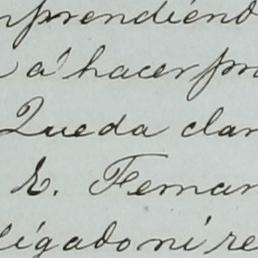 nprendiend
a á hacer pr
Queda clar
E. Fernan
ligado ni re